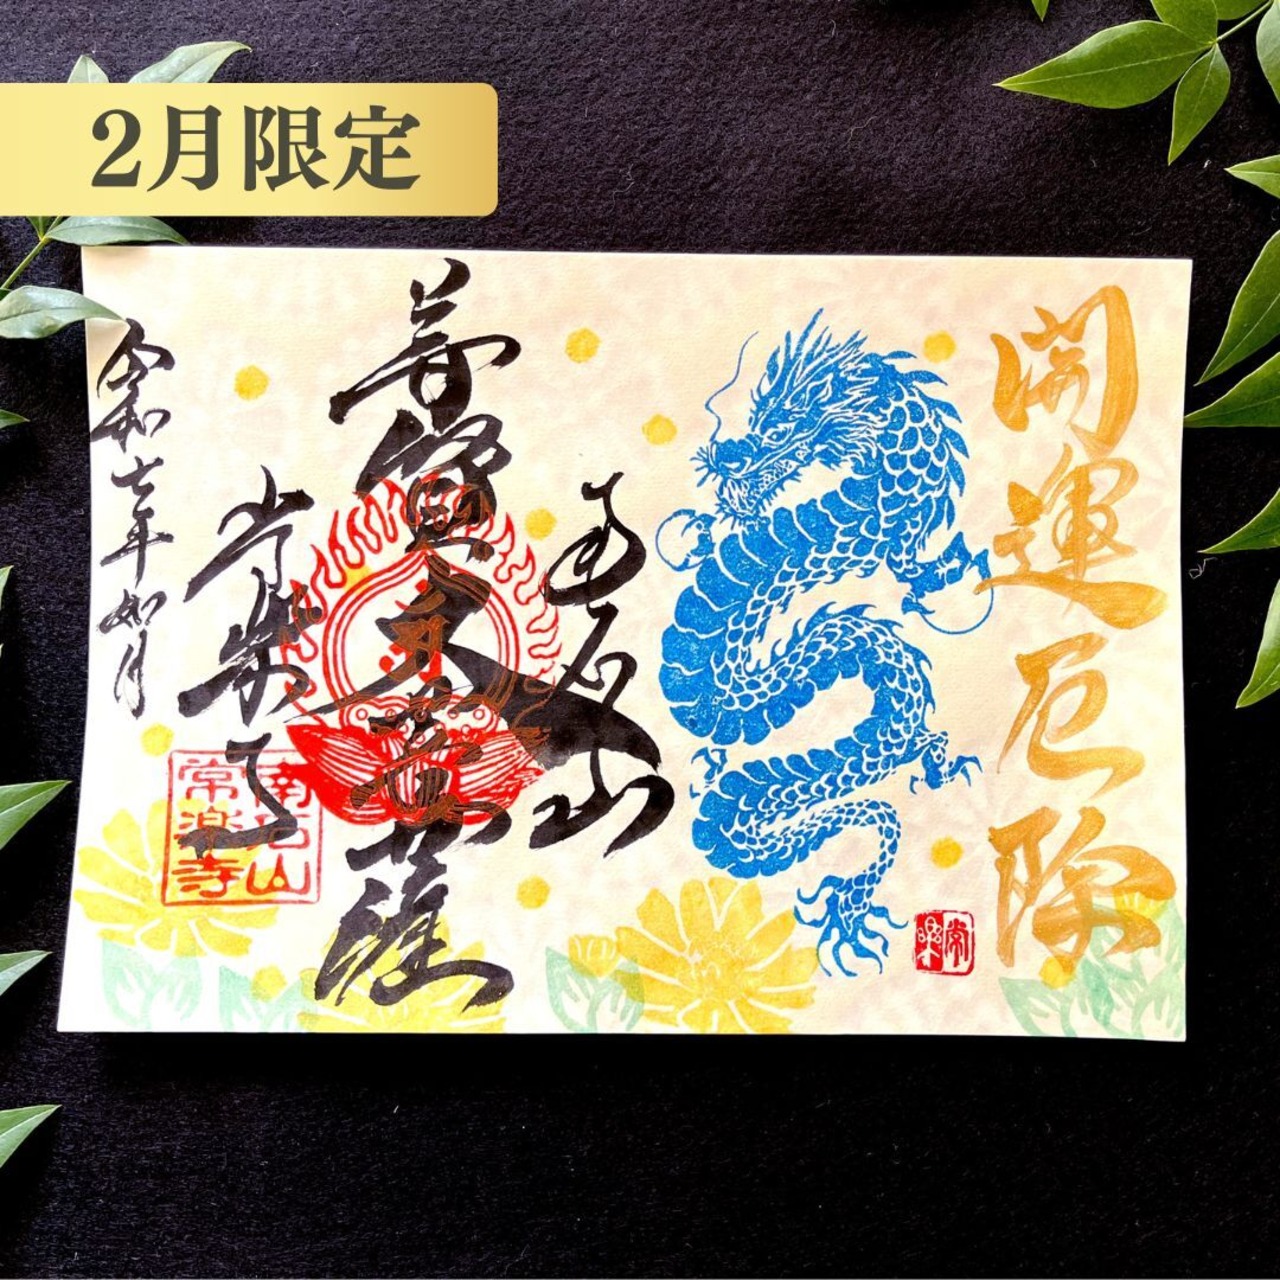 2月限定
開運厄除
南石山
普賢文菩薩
常楽寺
令和七年如月
南石山
常楽寺
常楽